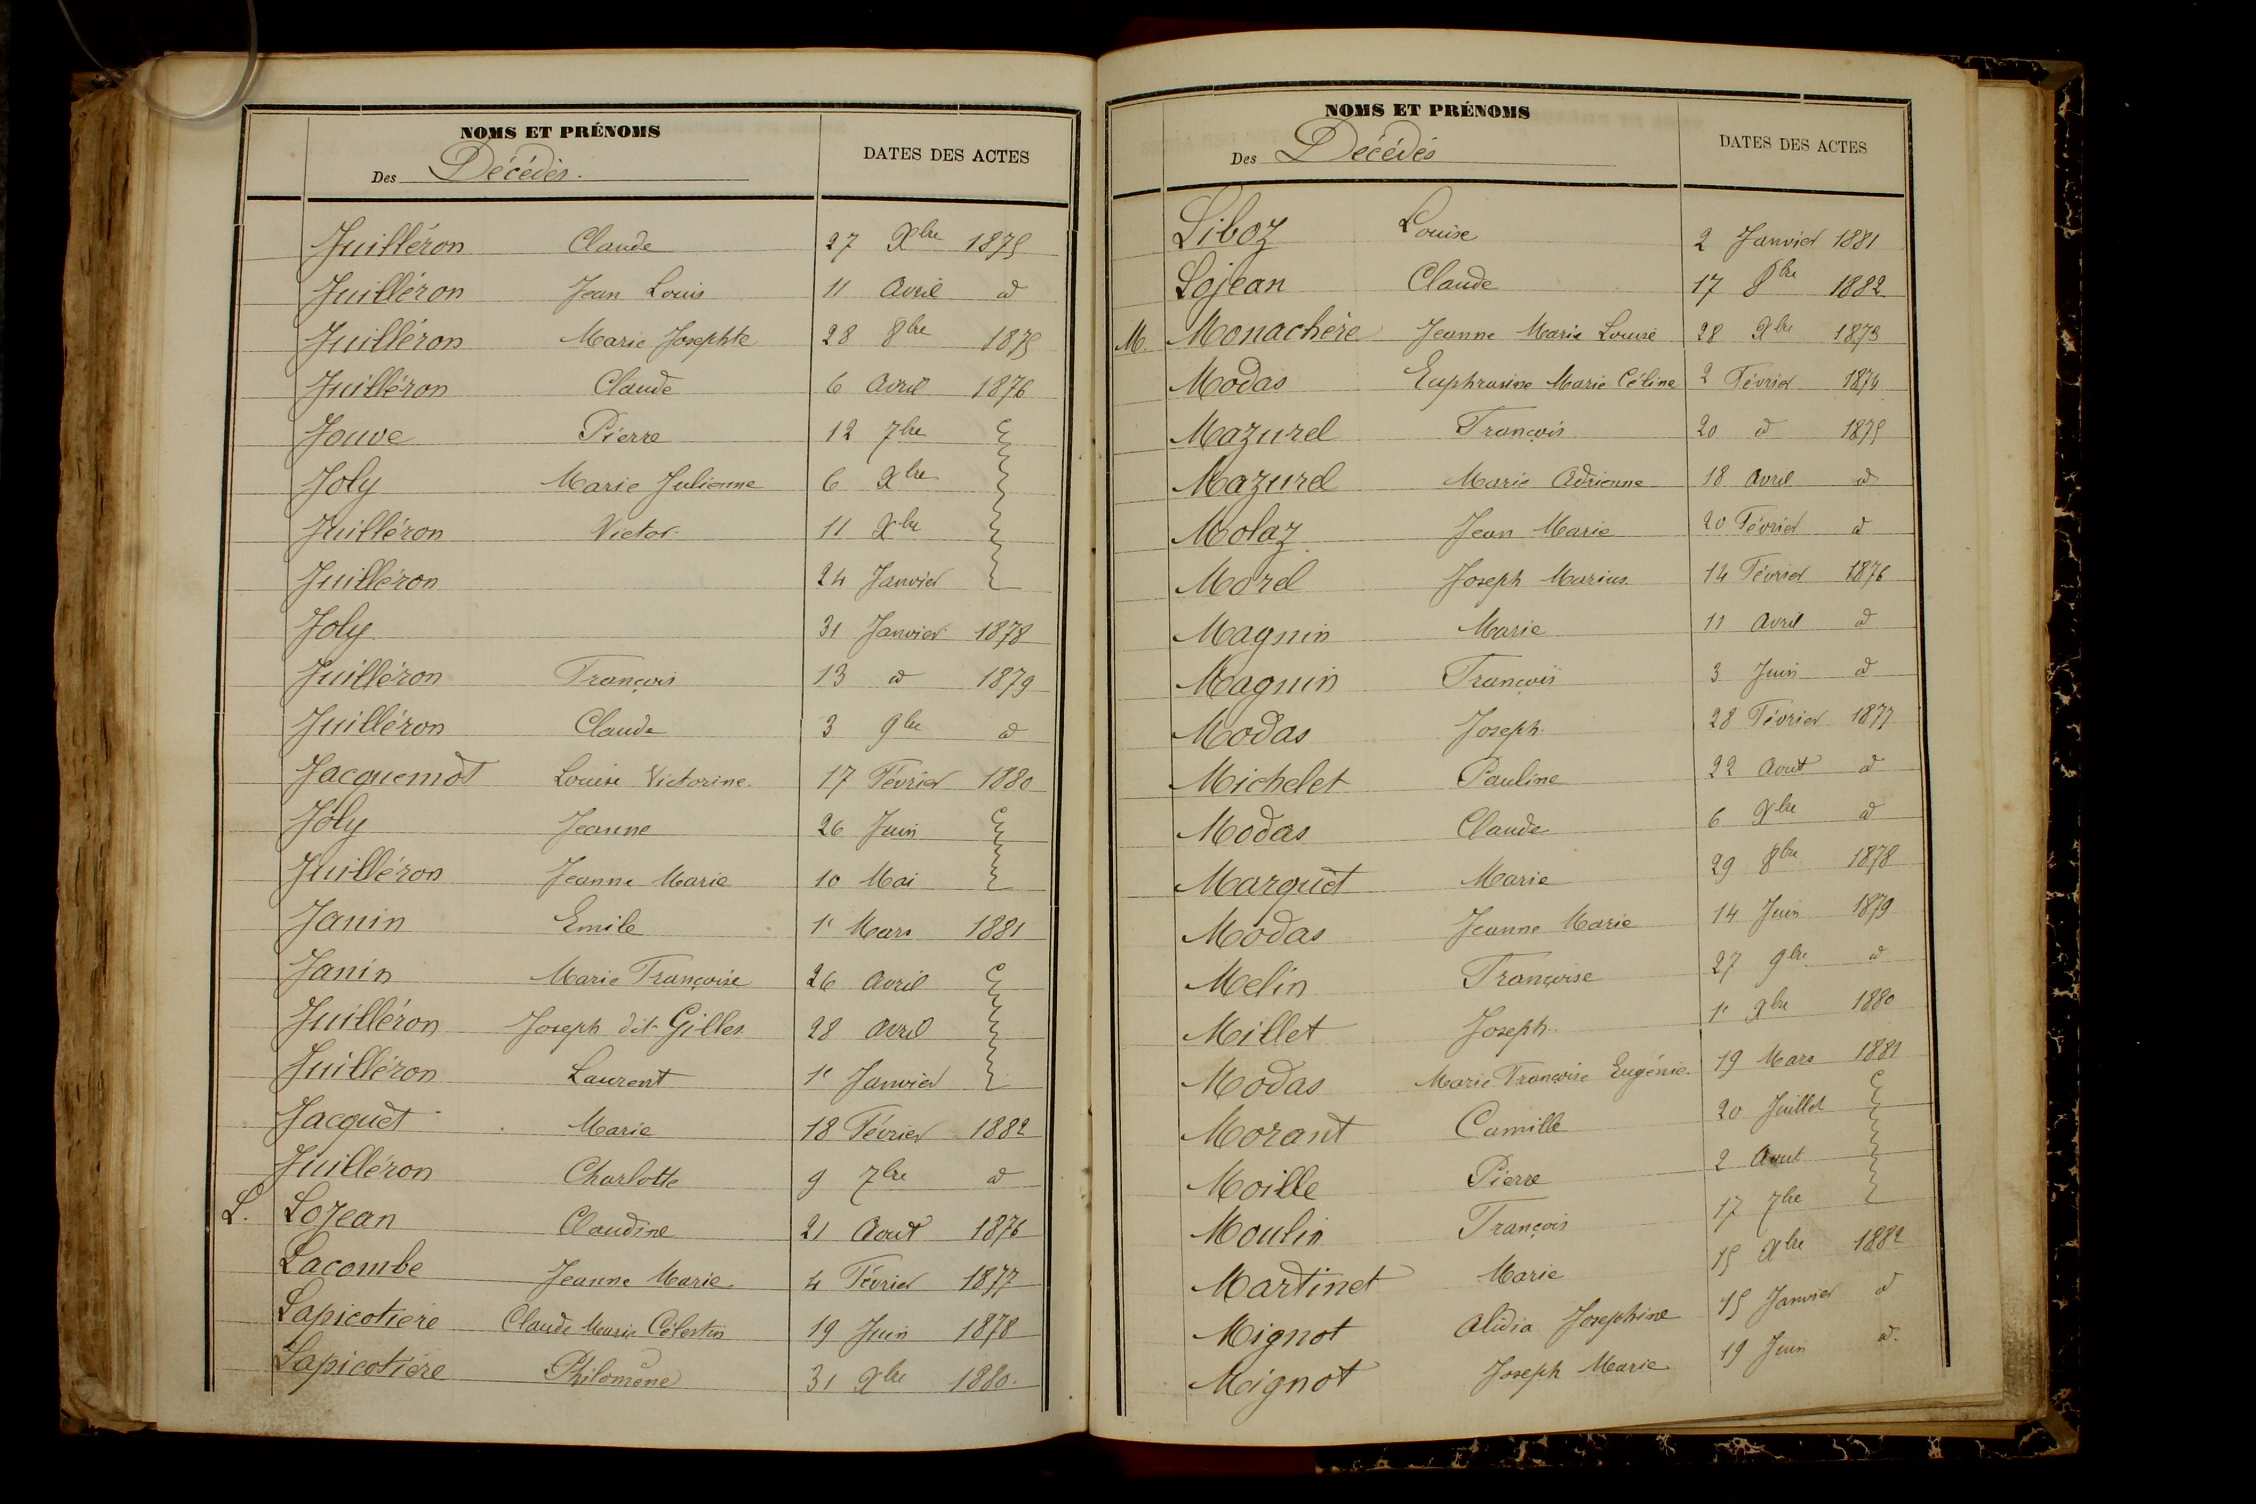 NOMS ET PRÉNOMS
Des Décédés.
DATES DES ACTES
Juilléron Claude 27 Xbre 1875
Juilléron Jean Louis 11 Avril d
Juilléron Marie Josephte 28 8bre 1875
Juilléron Claude 6 Avril 1876
Jouve Pierre 12 7bre
Joly Marie Julienne 6 Xbre
Juilléron Victor 11 Xbre
Juilléron 24 Janvier
Joly 31 Janvier 1878
Juilléron François 13 d 1879
Juilléron Claude 3 9bre d
Jacquemot Louise Victorine 17 Février 1880
Joly Jeanne 26 Juin
Juilléron Jeanne Marie 10 Mai
Janin Emile 1r Mars 1881
Janin Marie Françoise 26 Avril
Juilléron Joseph dit Gilles 28 Avril
Juilléron Laurent 1r Janvier
Jacquet Marie 18 Février 1882
Juilléron Charlotte 9 7bre d
L. Lojean Claudine 21 Aout 1876
Lacombe Jeanne Marie 4 Février 1877
Lapicotière Claude Marie Célestin 19 Juin 1878
Lapicotière Philomène 31 Xbre 1880.
NOMS ET PRÉNOMS
Des Décédés
DATES DES ACTES
Liboz Louise 2 Janvier 1881
Lojean Claude 17 8bre 1882
M. Monachère Jeanne Marie Louise 28 Xbre 1873
Modas Euphrasine Marie Céline 2 Février 1874
Mazurel François 20 d 1875
Mazurel Marie Adrienne 18 Avril d
Molaz Jean Marie 20 Février d
Morel Joseph Marius 14 Février 1876
Magnin Marie 11 Avril d
Magnin François 3 Juin d
Modas Joseph 28 Février 1877
Michelet Pauline 22 Aout d
Modas Claude 6 Xbre d
Marquet Marie 29 8bre 1878
Modas Jeanne Marie 14 Juin 1879
Melin Françoise 27 9bre d
Millet Joseph 1r Xbre 1880
Modas Marie Françoise Eugénie 19 Mars 1881
Morant Camille 20 Juillet
Moille Pierre 2 Aout
Moulin François 17 7bre
Martinet Marie 15 Xbre 1882
Mignot Alidia Josephine 15 Janvier d
Mignot Joseph Marie 19 Juin d.